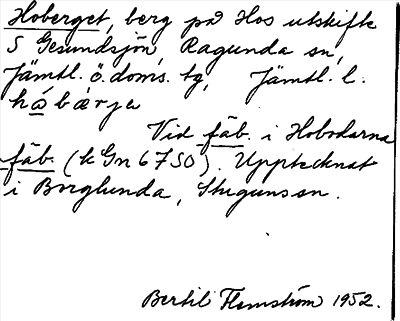 Hoberget, berg på Hos utskifte
S Gesundsjön, Ragunda sn,
Jämtl. ö. doms. tg, Jämtl. l.
håbærja
Vid fäb. i Hobodarna
fäb. (k Gn 6750). Upptecknat
i Borglunda, Stuguns sn.
Bertil Flemström 1952.